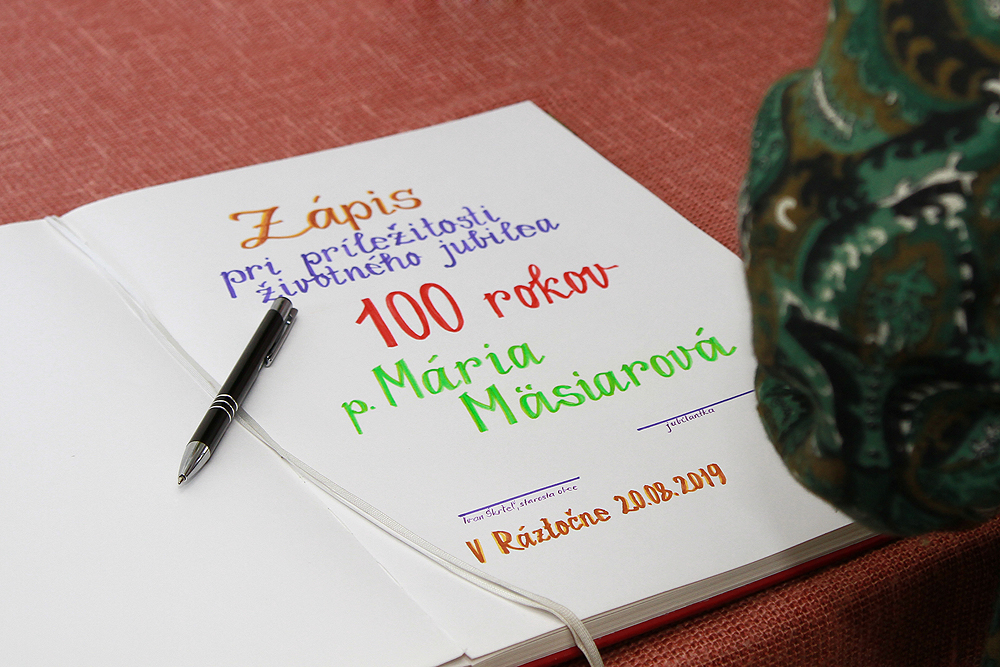 Zápis
pri príležitosti
životného jubilea
100 rokov
p. Mária
Mäsiarová
jubilantka
Ivan Škrteľ, starosta obce
V Ráztočne 20.08.2019